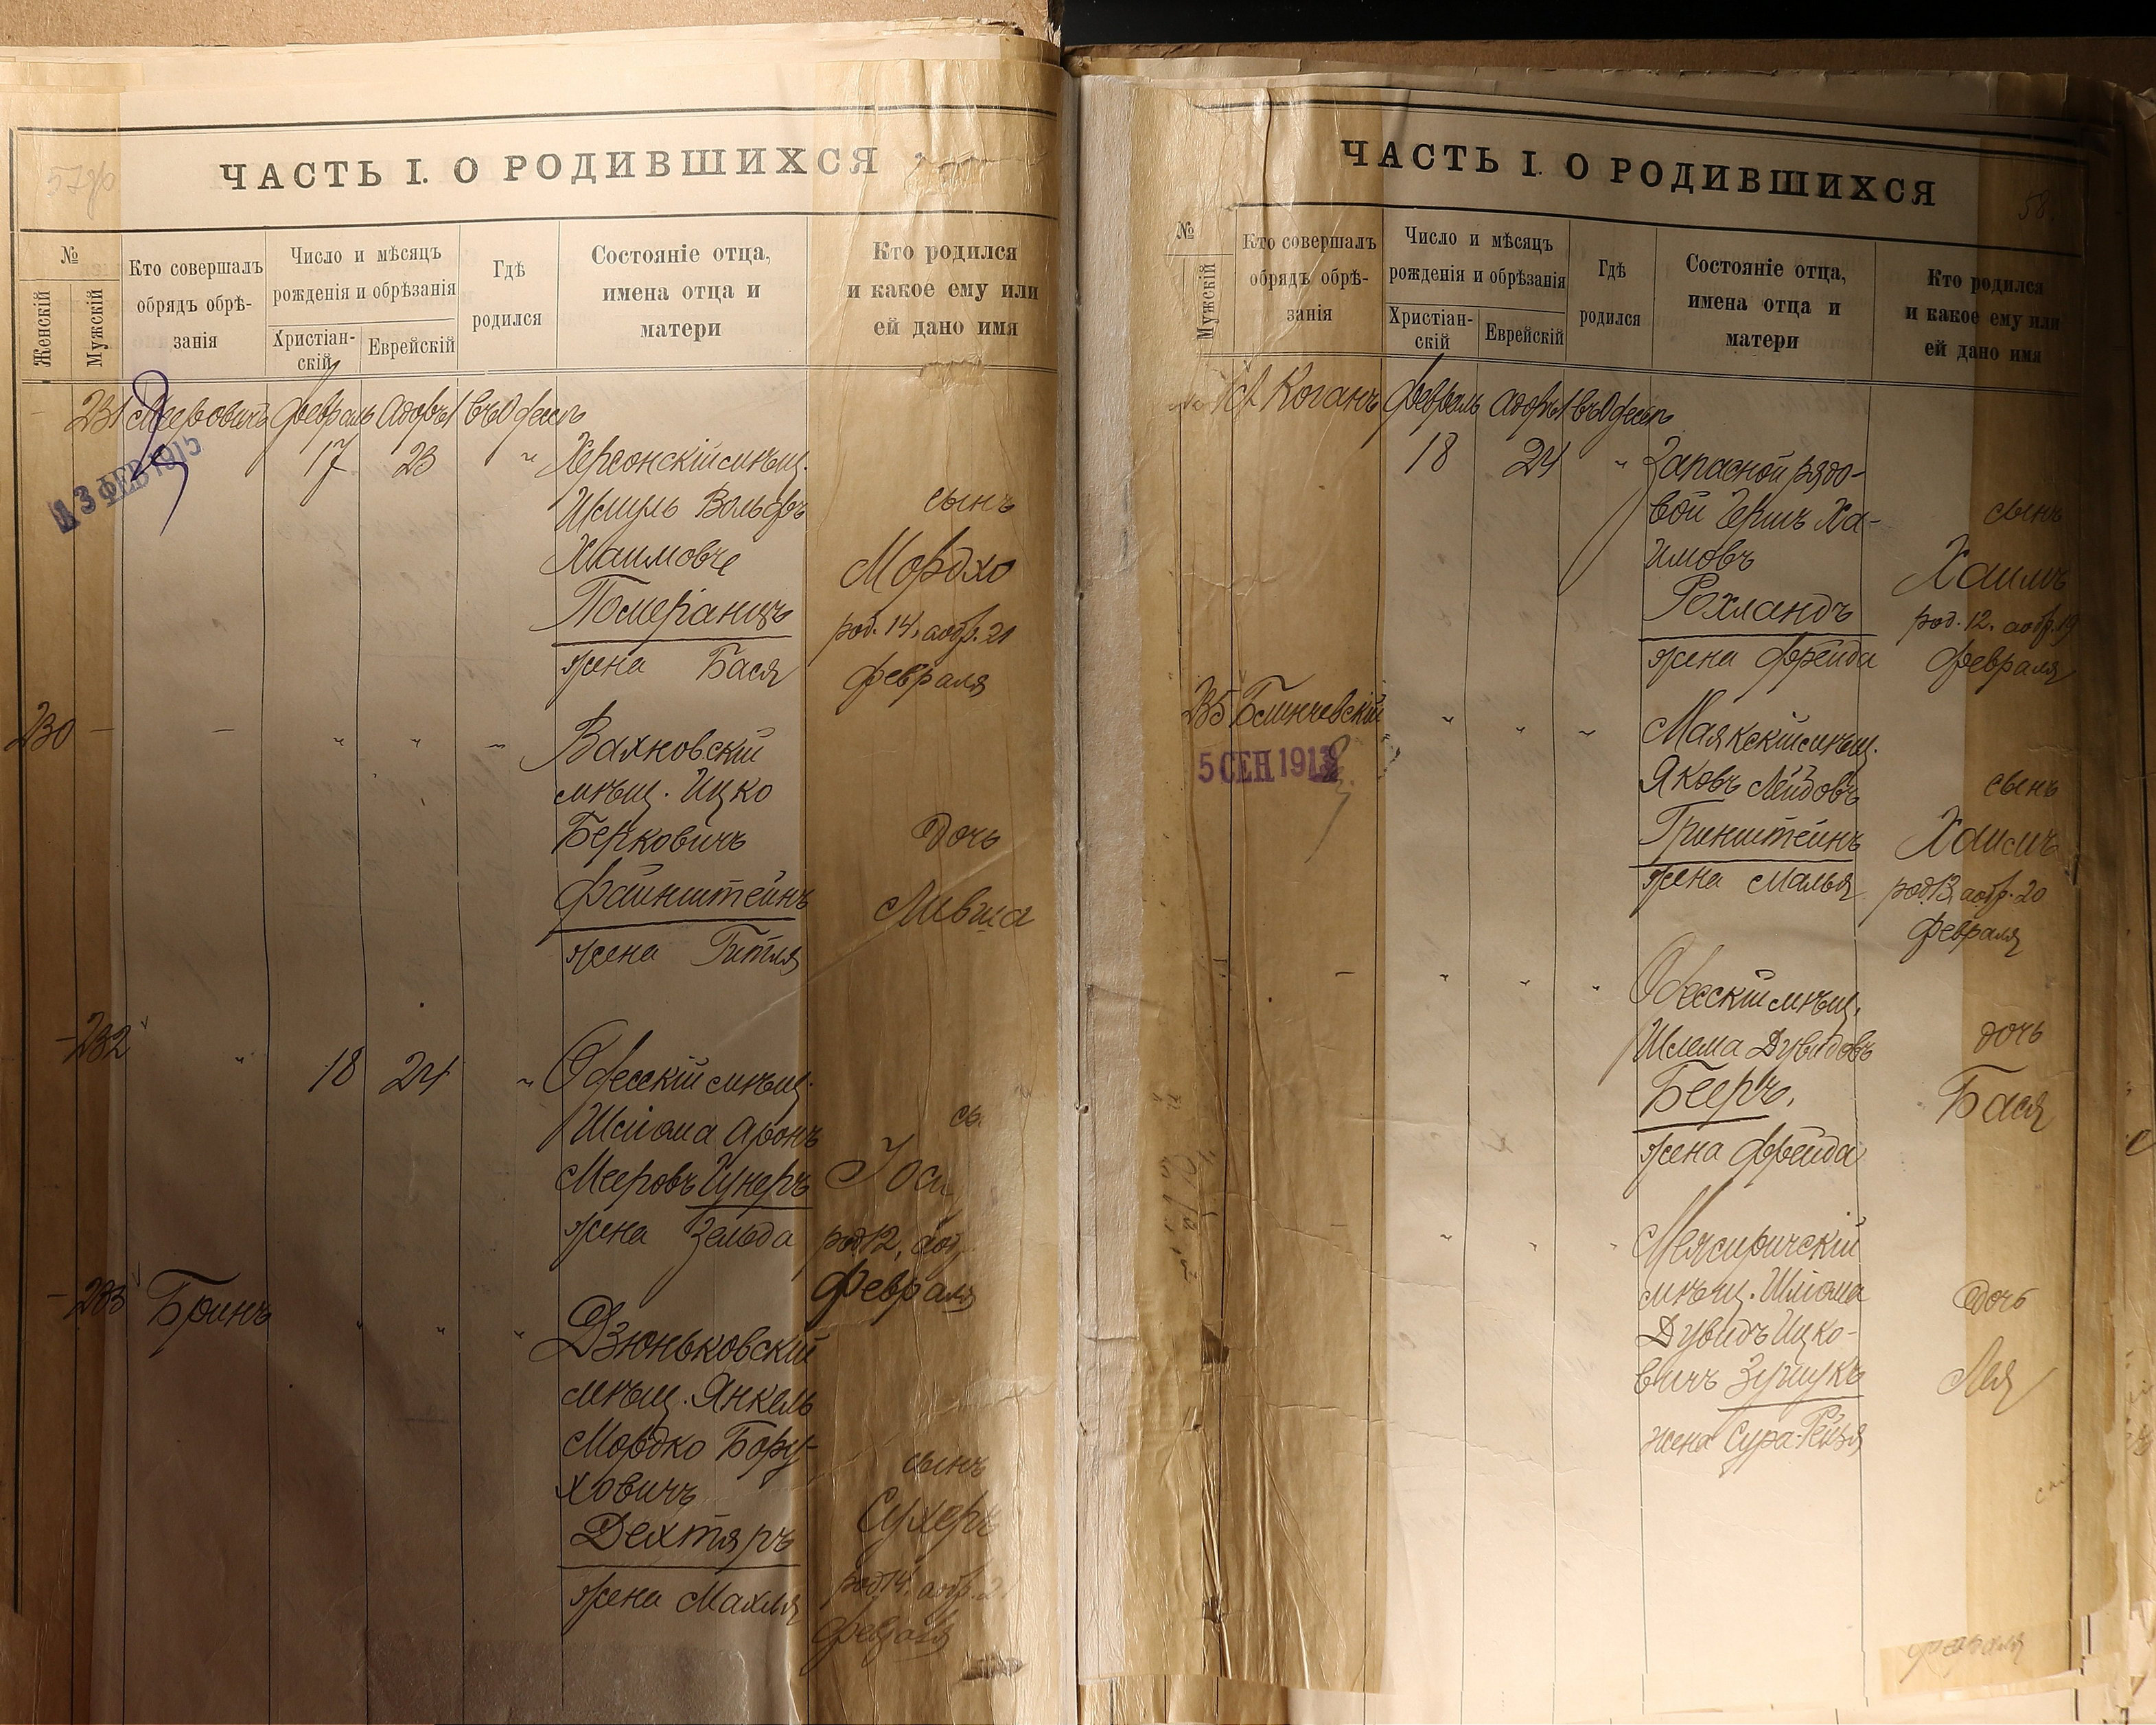 57об
ЧАСТЬ I. О РОДИВШИХСЯ
№
Женскій
Мужскій
Кто совершалъ
обрядъ обрѣ-
занія
Число и мѣсяцъ
рожденія и обрѣзанія
Христіан-
скій
Еврейскій
Гдѣ
родился
Состояніе отца,
имена отца и
матери
Кто родился
и какое ему или
ей дано имя
231 Мееровичъ Февраль Адаръ1 въ Одессѣ
13 ФЕВ 1915
17 23 " Херсонскій мѣщ.
Шмуль Вольфъ
сынъ
Хаимовъ
Мордхо
Померіанцъ
род. 14, аобр. 21
жена Бася
февраля
230 - - " " " Вахновскій
мѣщ. Ицко
Берковичъ
дочь
Файнштейнъ
Ливша
жена Гитля
- 232 " 18 24 " Одесскій мѣщ.
Шлема Аронъ
Мееровъ Цукеръ
жена Зельда
род. 12,
февраля
- 233 Бринъ " " " Дзюньковскій
мѣщ. Янкель
Мордко Бору-
ховичъ
сынъ
Дехтяръ
Сухеръ
род. 14, аобр. 21
жена Махля
февраля
58
ЧАСТЬ I. О РОДИВШИХСЯ
№
Мужскій
Кто совершалъ
обрядъ обрѣ-
занія
Число и мѣсяцъ
рожденія и обрѣзанія
Христіан-
скій
Еврейскій
Гдѣ
родился
Состояніе отца,
имена отца и
матери
Кто родился
и какое ему или
ей дано имя
Коганъ Февраль Адаръ1 въ Одессѣ
18 24 " Запасной рядо-
вой Гершъ Ха-
сынъ
имовъ
Хаимъ
Рохландъ
род. 12, аобр. 19
жена Фрейда
февраля
235 Блинчевскій " " " Маякскій мѣщ.
5 СЕН 1913
Яковъ Лейбовъ
сынъ
Гринштейнъ
Хаимъ
жена Малья
род. 13, аобр. 20
февраля
- " " " Одесскій мѣщ.
Шлема Дувидовъ
дочь
Бееръ,
Бася
жена Фрейда
" " "
мѣщ. Шлёма
дочь
Дувидъ Ицко-
вичъ
Лея
жена Сура-Рейзя
февраля